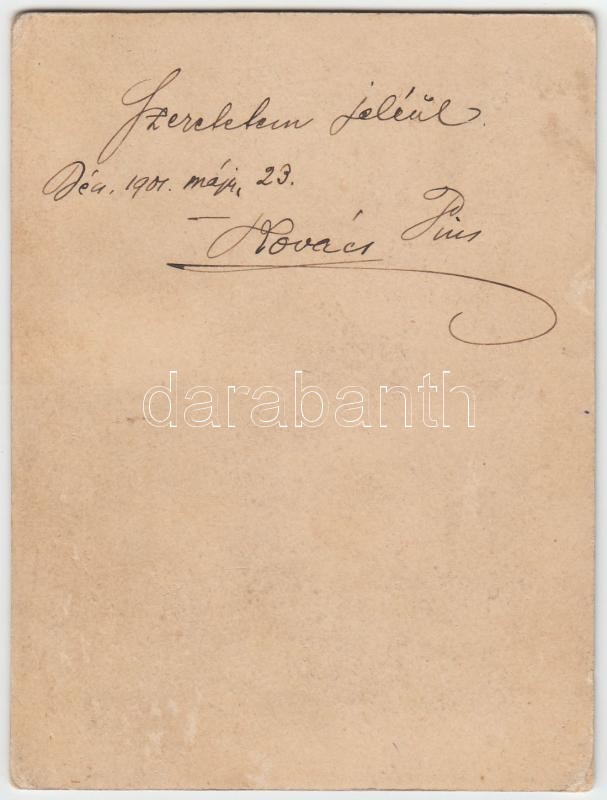 Szeretetem jeléül.
Dés. 1901. máj. 23.
Kovács Pius
darabanth